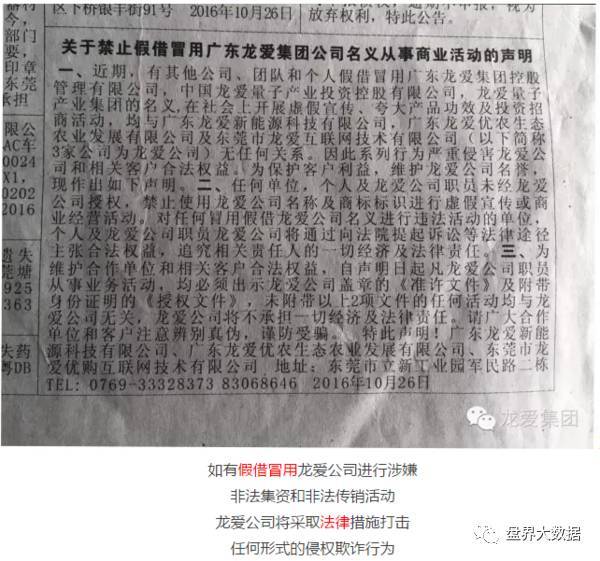 区下桥银丰街91号
2016年10月26日
放弃权利，特此公告。
关于禁止假借冒用广东龙爱集团公司名义从事商业活动的声明
一、近期，有其他公司、团队和个人假借冒用广东龙爱集团控股
管理有限公司，中国龙爱量子产业投资控股有限公司，龙爱量子
产业集团的名义,在社会上开展虚假宣传、夸大产品功效及投资招
商活动，均与广东龙爱新能源科技有限公司，广东龙爱优农生态
农业发展有限公司及东莞市龙爱互联网技术有限公司（以下简称
3家公司为龙爱公司）无任何关系。因此系列行为严重侵害龙爱公
司和相关客户合法权益。为保护客户利益，维护龙爱公司名誉，
现作出如下声明。二、任何单位，个人及龙爱公司职员未经龙爱
公司授权，禁止使用龙爱公司名称及商标标识进行虚假宣传或商
业经营活动。对任何冒用假借龙爱公司名义进行违法活动的单位，
个人及龙爱公司职员龙爱公司将通过向法院提起诉讼等法律途径
主张合法权益，追究相关责任人的一切经济及法律责任。三、为
维护合作单位和相关客户合法权益，自声明日起凡龙爱公司职员
从事业务活动，均必须出示龙爱公司盖章的《准许文件》及附带
身份证明的《授权文件》，未附带以上2项文件的任何活动均与龙
爱公司无关，龙爱公司将不承担一切经济及法律责任。请广大合
作单位和客户注意辨别真伪，谨防受骗。特此声明！广东龙爱新能
源科技有限公司、广东龙爱优农生态农业发展有限公司、东莞市龙
爱优购互联网技术有限公司 地址：东莞市立新工业园军民路二栋
TEL: 0769-33328373 83068646 2016年10月26日
部门
要，
印章
东莞
承担
限公
AC车
0024
X1,
0202
2016
遗失
莞塘
925
363
失药
粤DB
龙爱集团
如有假借冒用龙爱公司进行涉嫌
非法集资和非法传销活动
龙爱公司将采取法律措施打击
任何形式的侵权欺诈行为
盘界大数据